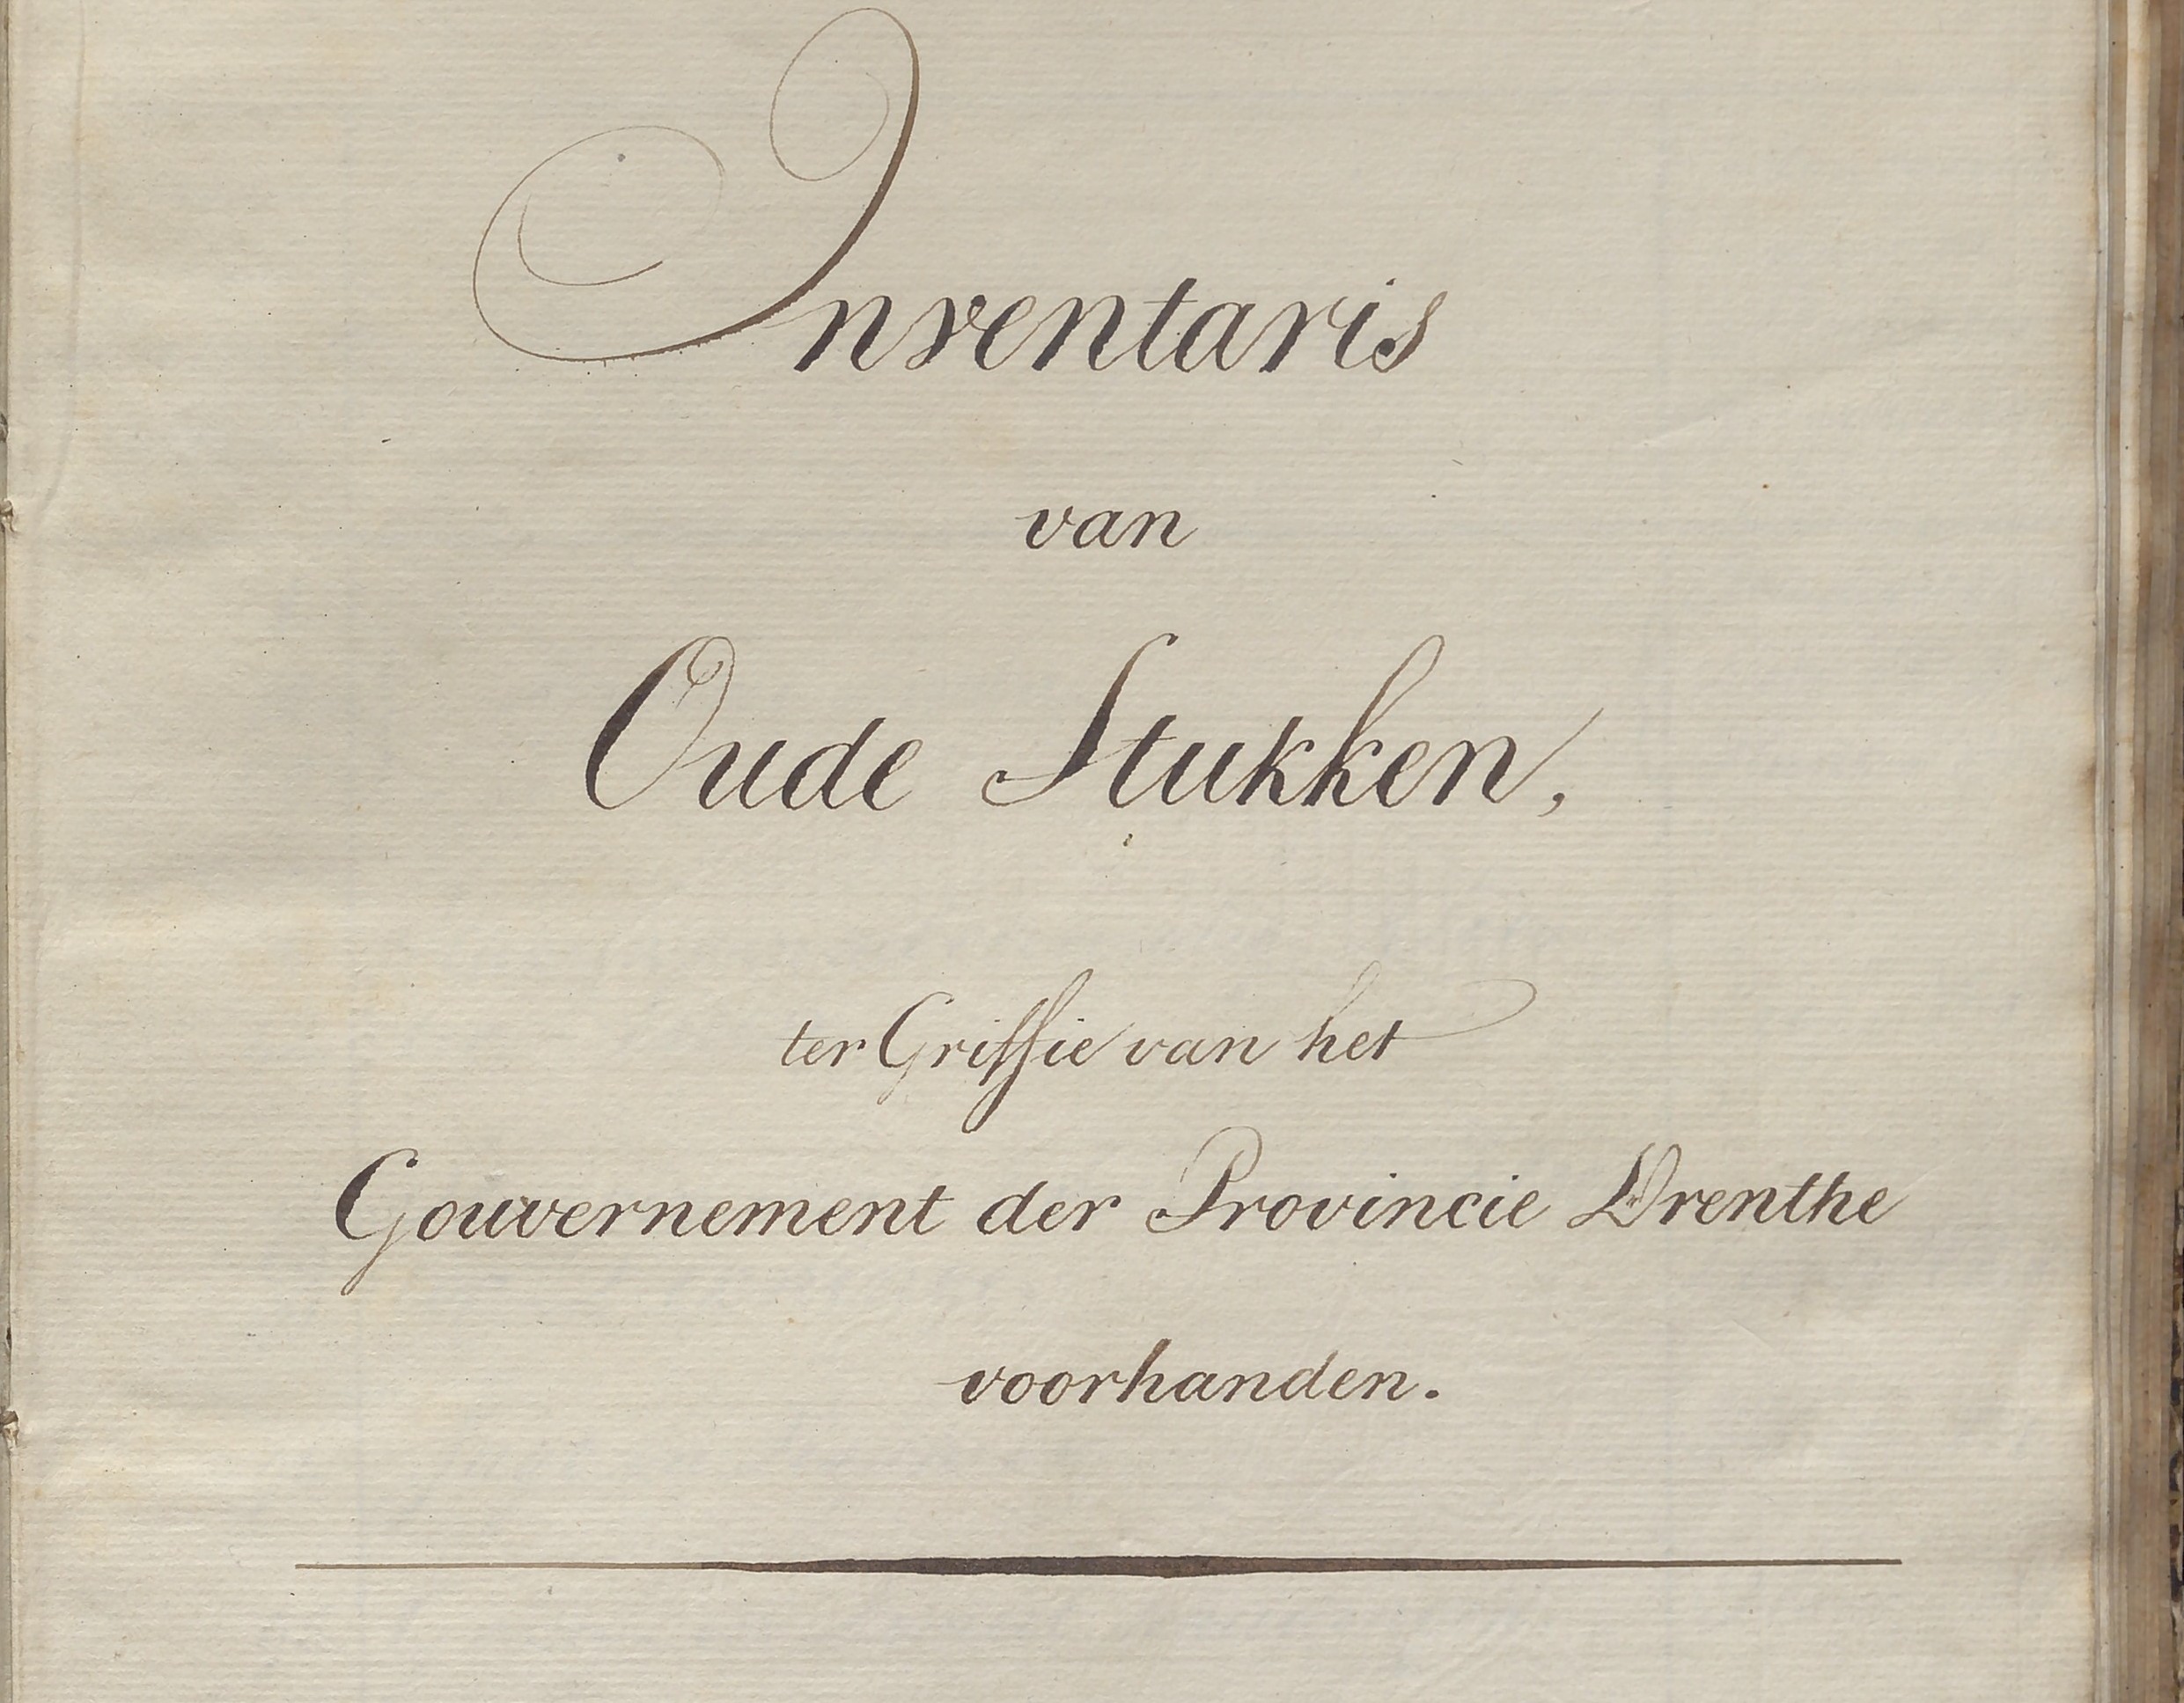 Inventaris
van
Oude Stukken,
ter Griffie van het
Gouvernement der Provincie Drenthe
voorhanden.